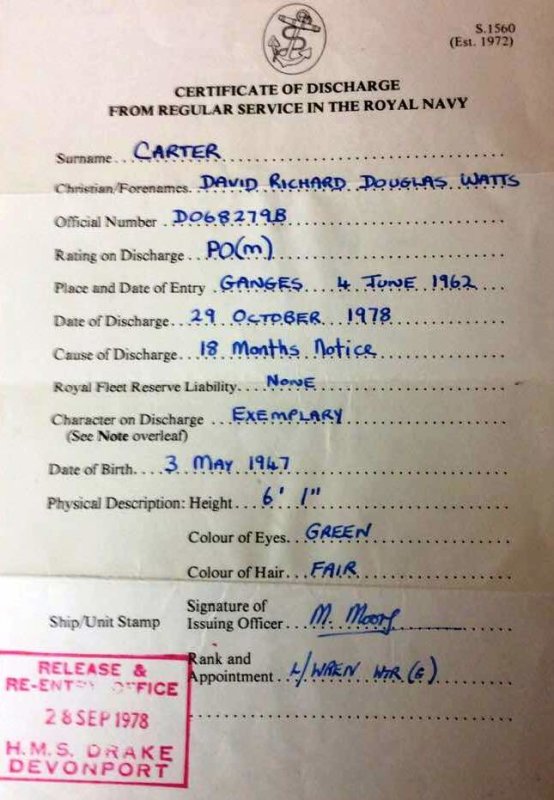 S.1560
(Est. 1972)
CERTIFICATE OF DISCHARGE
FROM REGULAR SERVICE IN THE ROYAL NAVY
Surname . . . CARTER
Christian/Forenames. DAVID RICHARD DOUGLAS WATTS
Official Number . D068279B
Rating on Discharge . . PO(M)
Place and Date of Entry . GANGES 4 JUNE 1962
Date of Discharge . . . 29 OCTOBER 1978
Cause of Discharge . . 18 Months Notice
Royal Fleet Reserve Liability . . . NONE
Character on Discharge . . . EXEMPLARY
(See Note overleaf)
Date of Birth . . . 3 MAY 1947
Physical Description: Height . . . 6' 1"
Colour of Eyes . . . GREEN
Colour of Hair . . . FAIR
Ship/Unit Stamp
Signature of
Issuing Officer . . . M. Moors
Rank and
Appointment . . L/WREN WTR (G)
RELEASE &
RE-ENTRY OFFICE
28 SEP 1978
H.M.S. DRAKE
DEVONPORT